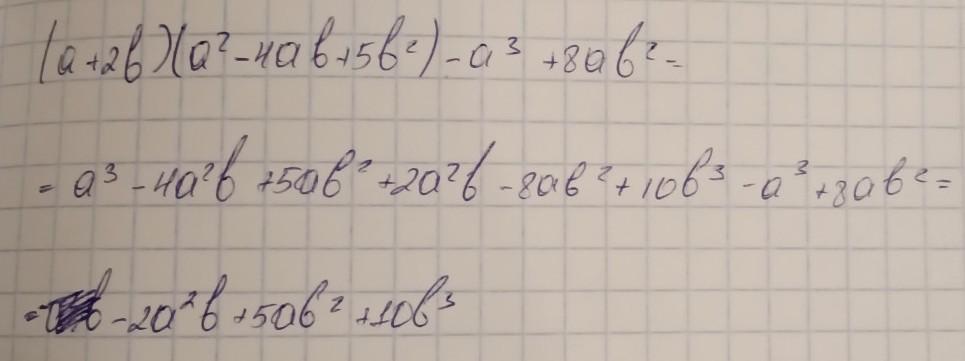 (a+2b)(a²-4ab+5b²)-a³+8ab²=
=a³-4a²b+5ab²+2a²b-8ab²+10b³-a³+8ab²=
=-2a²b+5ab²+10b³